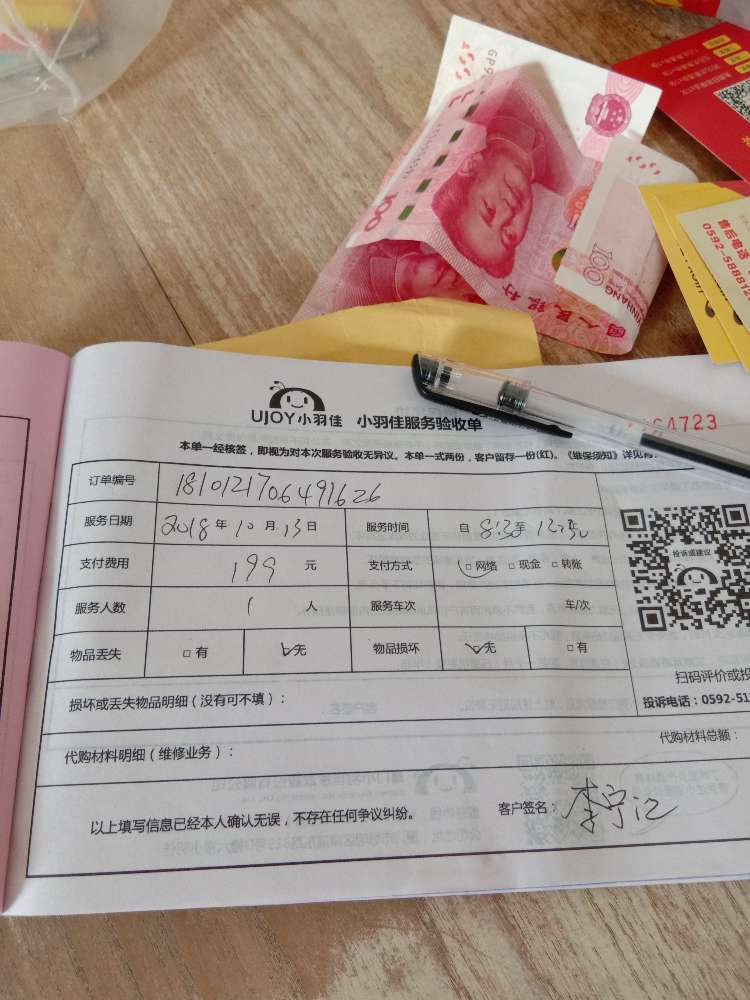 GP9
100
100
中国人民银行
售后电话
0592-588812
UJOY小羽佳 小羽佳服务验收单
64723
本单一经核签，即视为对本次服务验收无异议。本单一式两份，客户留存一份(红)。《维保须知》详见背
订单编号 181012170649 1626
服务日期 2018年10月13日 服务时间 自 8:30至 12:30
支付费用 199 元 支付方式 □网络 □现金 □转账
服务人数 1 人 服务车次 车/次
物品丢失 □有 ☑无 物品损坏 ☑无 □有
投诉或建议
扫码评价或投
投诉电话：0592-51
损坏或丢失物品明细（没有可不填）：
代购材料明细（维修业务）： 代购材料总额：
以上填写信息已经本人确认无误，不存在任何争议纠纷。 客户签名：李宁江